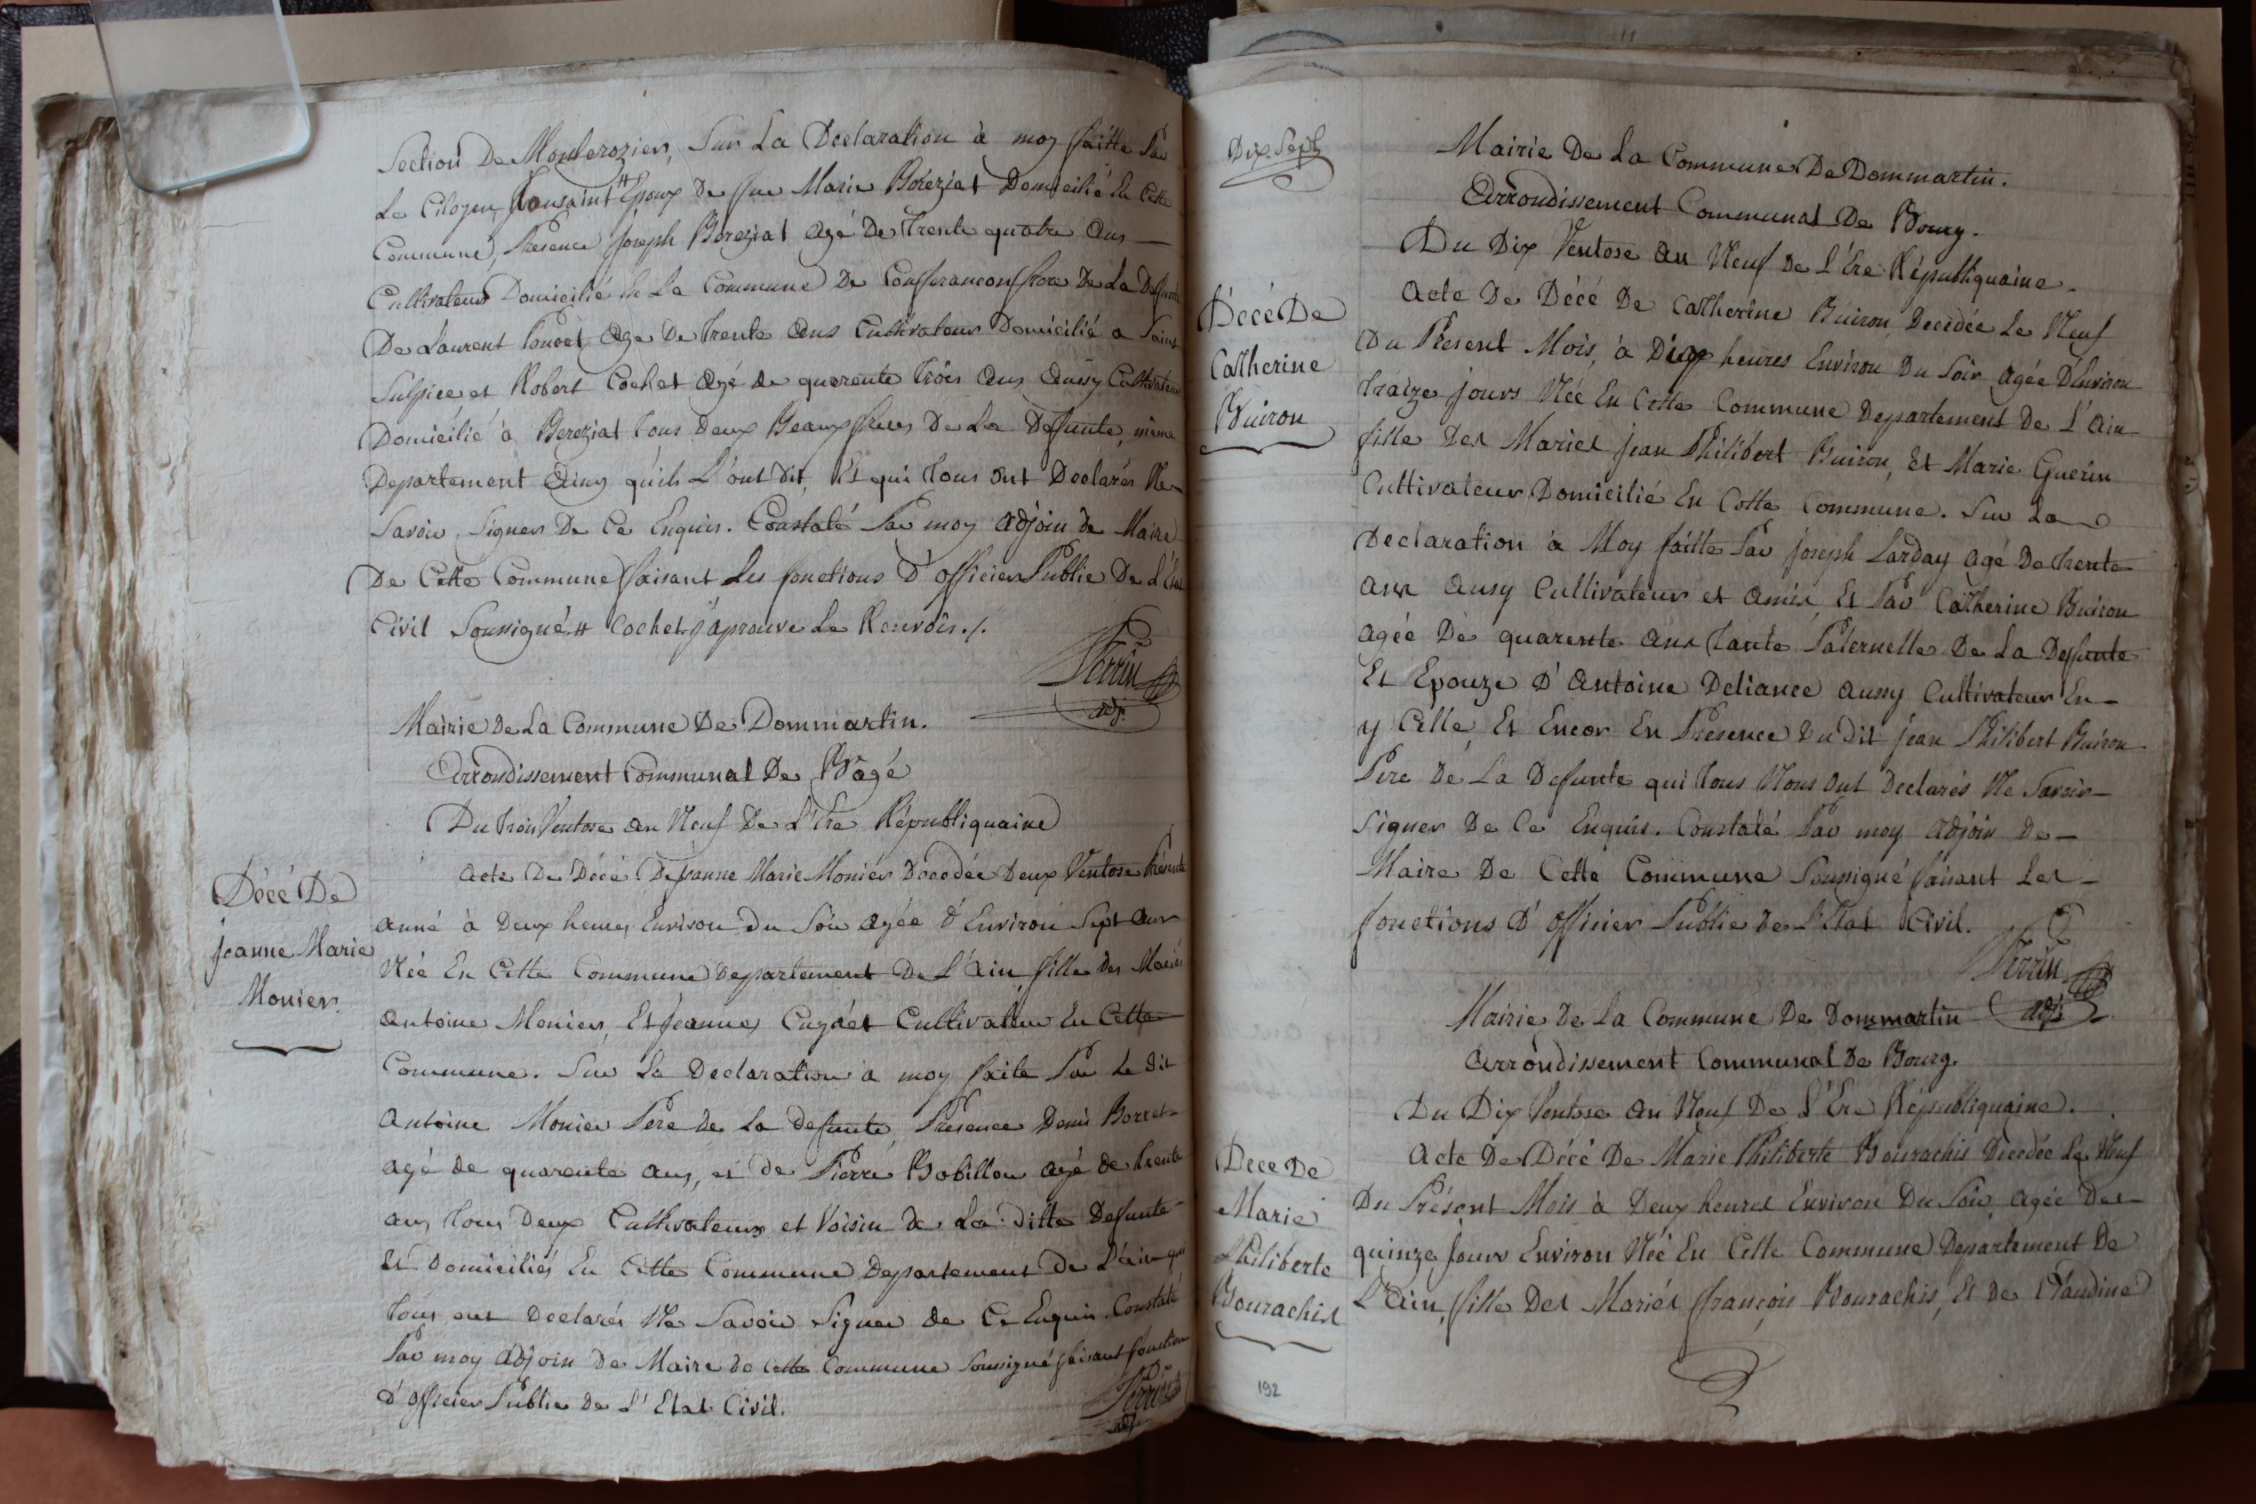 Section De Montcrozier, Sur La Declaration à moy faitte Par
Le Citoyen Tousaint # Epoux de fue Marie Bereziat Domicilié En Cette
Commune, Presence Joseph Bereziat agé De Trente quatre Ans
Cultivateur Domicilié En La Commune De Confrancon frere De La Defunte
De Laurent Age De Trente Ans Cultivateur Domicilié a Saint
Sulpice et Robert Cochet agé de quarente Trois Ans Aussy Cultivateur
Domicilié à Bereziat Tous Deux Beauxfreres De La Defunte, même
Departement Ainy qu'ils L'ont Dit, Et qui Tous ont Declarés Ne
Savoir Signer De Ce Enquis. Constaté Par moy adjoin de Maire
De Cette Commune faisant Les fonctions D'officier Public De L'Etat
Civil Soussigné # Cochet j'aprouve Le Renvois ./.
Perrin
adj.
Mairie De La Commune De Dommartin.
Arrondissement Communal De Bâgé
Du Trois Ventose an Neuf De L'Ere Républiquaine
Décé De
Jeanne Marie
Monier.
Acte De Décé De Jeanne Marie Monier Décedée Deux Ventose Présente
anné à Deux heures Environ du Soir agée d'Environ Sept ans
Née En Cette Commune Departement De L'ain, fille des Mariés
Antoine Monier, Et Jeanne Cultivateur En Cette
Commune. Sur La Declaration a moy faite Par Le dit
Antoine Monier Pere de La defunte, Presence Denis Borret
agé de quarente ans, et de Pierre Bobillon agé de trente
ans Tous Deux Cultivateurs et Voisin de La ditte Defunte
Et Domiciliés En Cette Commune Departement De L'ain qui
Tous ont Declarés Ne Savoir Signer de Ce Enquis. Constaté
Par moy adjoin De Maire de cette Commune Soussigné faisant fonction
d'officier Public De L'Etat Civil.
Perrin
adj.
Dix Sept
Mairie De La Commune De Dommartin.
Arrondissement Communal De Bourg.
Du Dix Ventose an Neuf De L'Ere Républiquaine.
Décé De
Catherine
Buiron
Acte De Décé De Catherine Buiron Decedée Le Neuf
Du Present Mois, à Dix heures Environ Du Soir agée D'Environ
Traize jours Née En Cette Commune Departement De L'Ain
fille Des Mariés Jean Philibert Buiron, Et Marie Guerin
Cultivateur Domicilié En Cette Commune. Sur La
Declaration à Moy faitte Par Joseph Larday agé De trente
ans Ausy Cultivateur et amis Et Par Catherine Buiron
agée De quarente ans Tante Paternelle De La Defunte
Et Epouze D'Antoine Deliance aussy Cultivateur En
y Celle, Et Encor En Presence Du Dit Jean Philibert Buiron
Pere De La Defunte qui Tous Nous Ont Declarés Ne Savoir
Signer De Ce Enquis. Constaté Par moy adjoin De
Maire De Cette Commune Soussigné faisant Les
fonctions D'officier Public de L'Etat Civil.
Perrin
adj.
Mairie De La Commune De Dommartin
Arrondissement Communal De Bourg.
Du Dix Ventose an Neuf De L'Ere Républiquaine.
Dece De
Marie
Philiberte
Bourachis
Acte De Décé De Marie Philiberte Bourachis Decedée Le Neuf
Du Présent Mois à Deux heures Environ Du Soir agée Des
quinze Jours Environ Née En Cette Commune Departement De
L'Ain, fille Des Mariés françois Bourachis, Et De Claudine
192